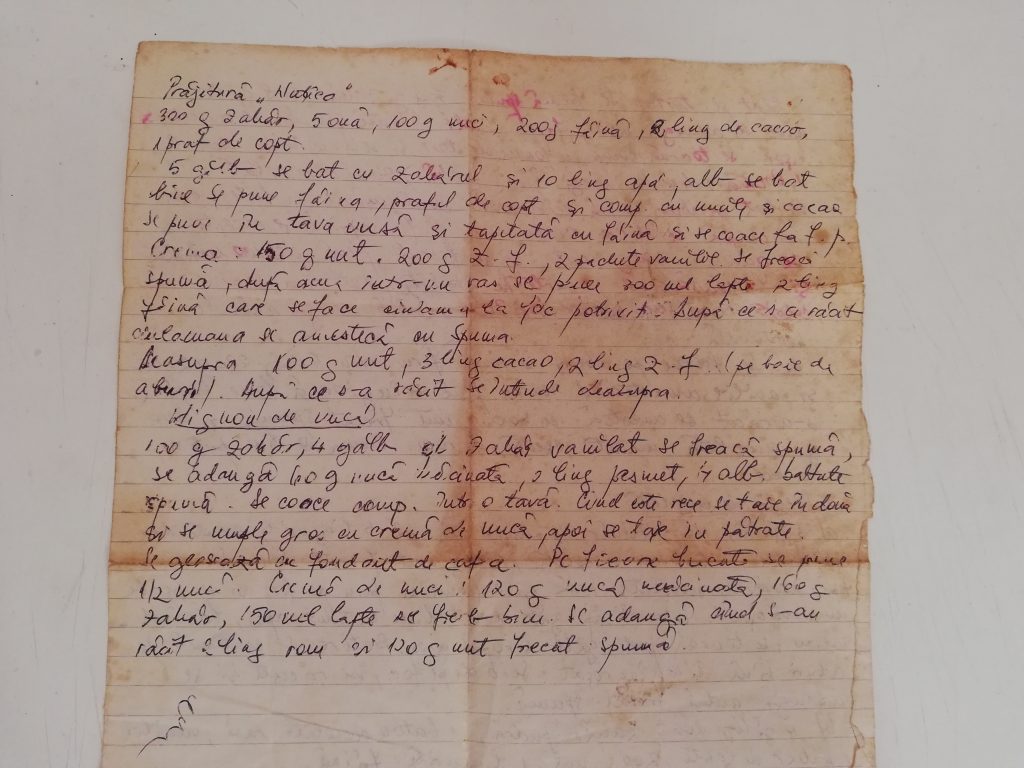 Prăjitură „Nuțica"
300 g zahăr, 5 ouă, 100 g nuci, 200g făină, 2 ling de cacao,
1 praf de copt.
5 gălb se bat cu zahărul și 10 ling apă, alb se bat
bine se pune făina, praful de copt și comp. cu nucile și cacao
se pune în tava unsă și tapitată cu făină și se coace la f. p.
Crema: 150 g unt. 200 g z. f., 2 pachete vanilie se freacă
spumă, după acea într-un vas se pune 300 ml lapte 2 ling
făină care se face ciulama la foc potrivit. După ce s-a răcit
ciulamaua se amestică cu spuma.
Deasupra 100 g unt, 3 ling cacao, 2 ling z. f. (pe baie de
aburi). După ce s-a răcit se întinde deasupra.
Mignon de nucă
100 g zahăr, 4 gălb zahăr vanilat se freacă spumă,
se adaugă g nucă măcinată, 2 ling pesmet, 4 alb. battute
spumă. Se coace comp. într-o tavă. Cînd este rece se taie în două
și se umple gros cu cremă de nucă, apoi se taie în pătrate.
Se glasează cu fondant de cafea. Pe fiecare bucată se pune
1/2 nucă. Cremă de nuci: 120 g nucă măcinată, 160 g
zahăr, 150 ml lapte se fierb bine. Se adaugă cînd s-au
răcit 2 ling rom și 120 g unt frecat spumă.